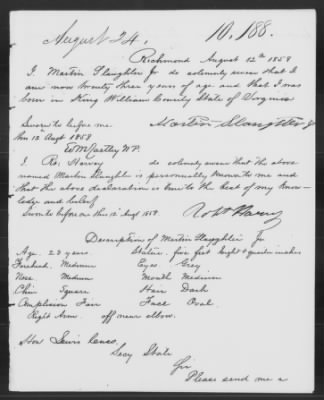 August 24.
10.188.
Richmond August 12th 1858
I. Martin Slaughter Jr do solemly swear that I
am now twenty three years of age and that I was
born in King William County State of Virginia
Sworn to before me
Martin Slaughter Jr
this 12th Augt 1858
N.P.
I Ro: Harvey do solemly swear that the above
named Martin Slaughter is personally known to me and
that the above declaration is true to the best of my know-
ledge and belief
Sworn to before me this 12th Augt 1858.
Ro Harvey
Description of Martin Slaughter Jr
Age. 23 years. Stature. five feet eight & quarter inches
Forehead. Medium Eyes Grey
Nose Medium Mouth Medium
Chin Square Hair Dark
Complexion Fair Face Oval
Right Arm. off near elbow.
Hon Lewis Cass.
Secy State
Sir
Please send me a